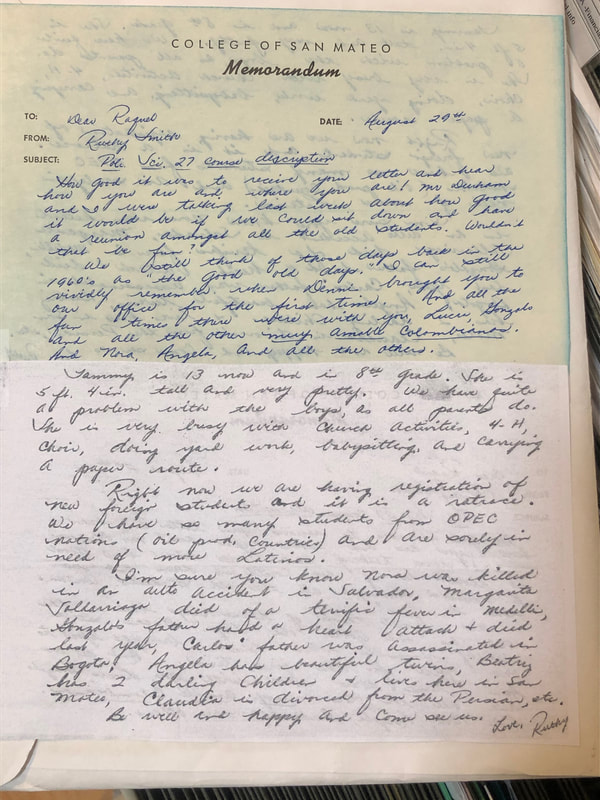 COLLEGE OF SAN MATEO
Memorandum
TO: Dear Raquel DATE: August 29th
FROM: Rusty Smith
SUBJECT: Poli. Sci. 27 course description
How good it was to receive your letter and hear
how you are and where you are! Mr Durham
and I were talking last week about how good
it would be if we could sit down and have
a reunion amongst all the old students. Wouldn't
that be fun?
We still think of those days back in the
1960's as "the good old days." I can still
vividly remember when Denni brought you to
our office for the first time. And all the
fun times there were with you, Lucia, Gonzalo
and all the other muy amable Colombianos.
And Nora, Angela, And all the others.
Tammy is 13 now and in 8th grade. She is
5 ft. 4 in. tall and very pretty. We have quite
a problem with the boys, as all parents do.
She is very busy with Church Activities, 4-H,
Choir, doing yard work, babysitting, and carrying
a paper route.
Right now we are having registration of
new foreign student and it is a ratrace.
We have so many students from OPEC
nations (oil prod. countries) and are sorely in
need of more Latinos.
I'm sure you know Nora was killed
in an auto accident in Salvador, Margarita
died of a terrific fever in Medellin,
Gonzalo's father had a heart attack & died
last year, Carlos' father was assassinated in
Bogota, Angela has beautiful twins, Beatriz
has 2 darling children & lives here in San
Mateo, Claudia is divorced from the Persian, etc.
Be well and happy and come see us.
Love, Rusty